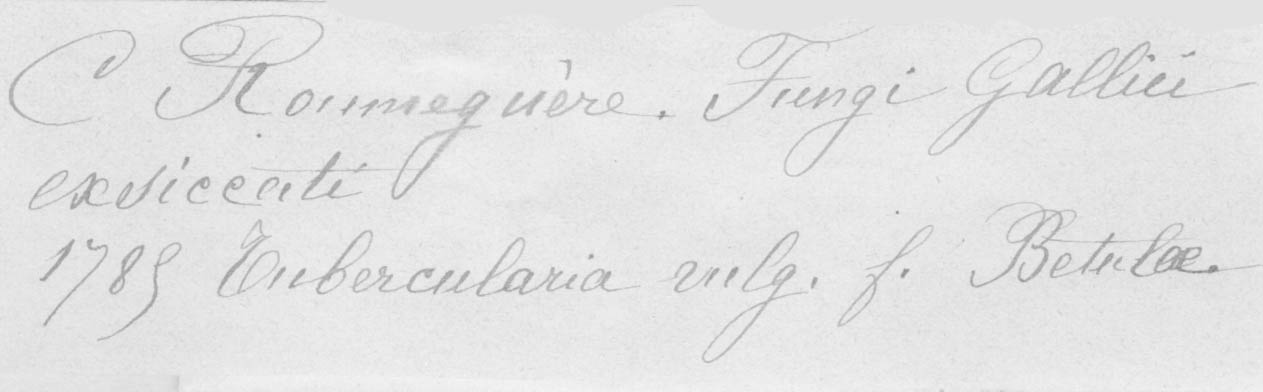 C Roumeguère. Fungi Gallici
exsiccati
1785 Tubercularia vulg. f. Betulae.